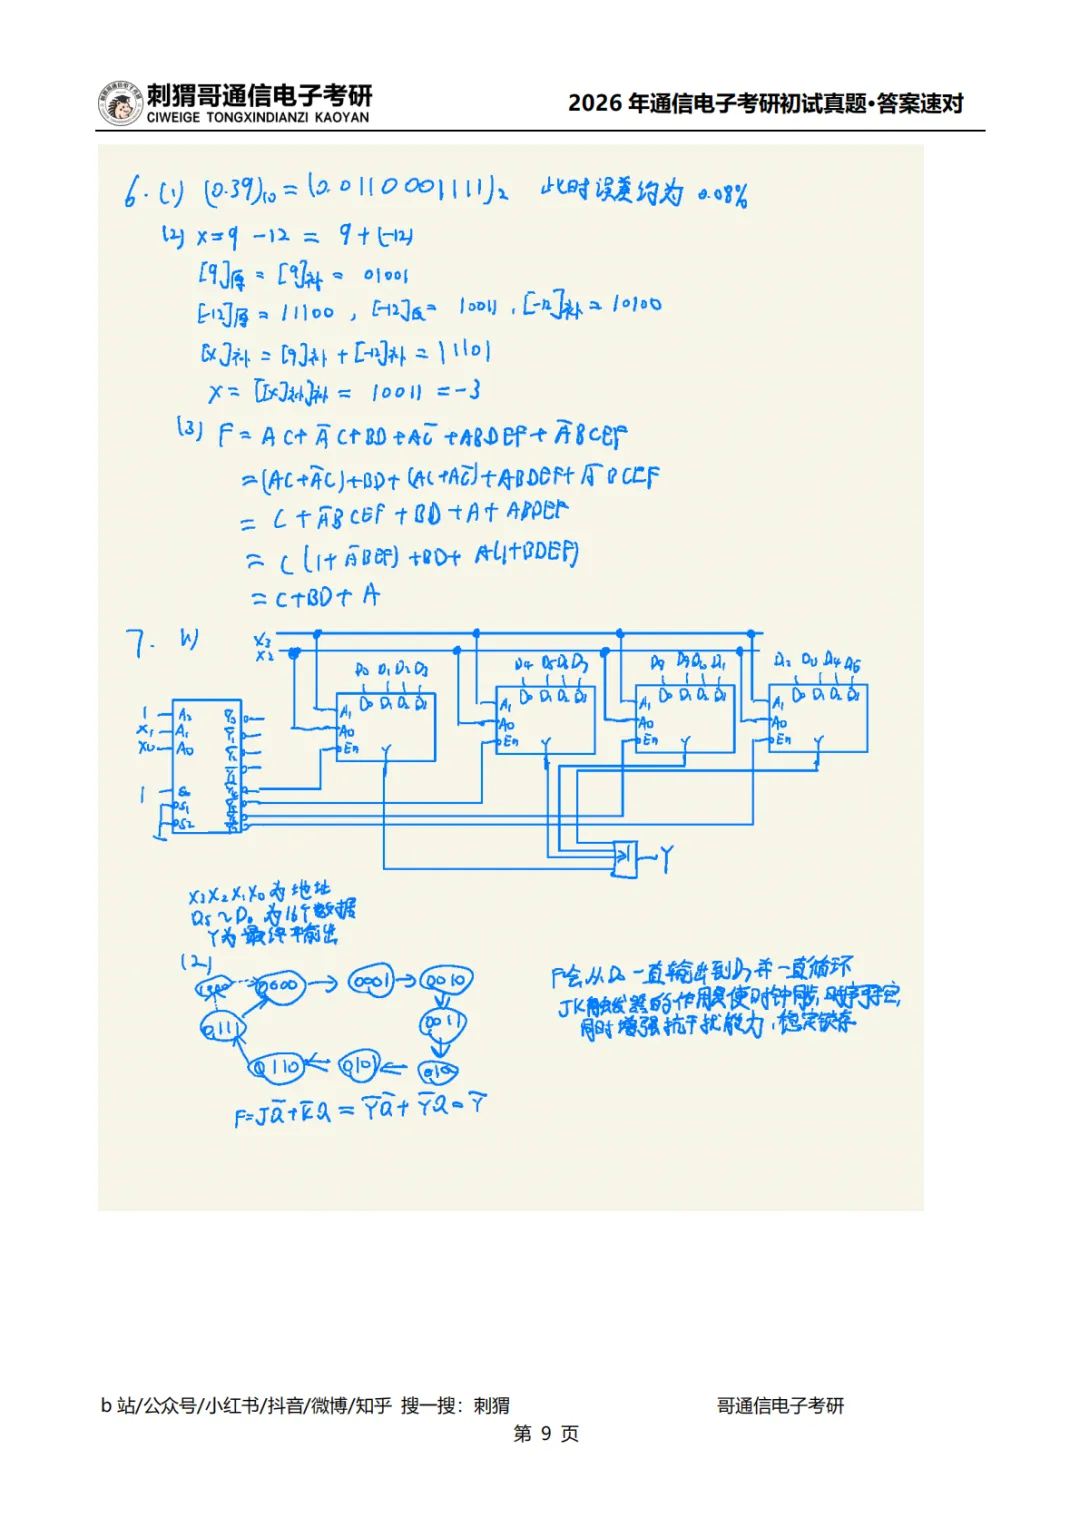 刺猬哥通信电子考研
CIWEIGE TONGXINDIANZI KAOYAN
2026 年通信电子考研初试真题•答案速对
6. (1) (0.39)₁₀ = (0.01100011111)₂ 此时误差约为 0.08%
(2) x=9 -12 = 9+(-12)
[9]原 = [9]补 = 01001
[-12]原 = 11100 , [-12]反 = 10011 , [-12]补 = 10100
[x]补 = [9]补 + [-12]补 = 11101
x = [[x]补]补 = 10011 = -3
(3) F = AC+A̅C+BD+AC̅+ABDEF+A̅BCEF
=(AC+A̅C)+BD+(AC+AC̅)+ABDEF+A̅BCEF
= C+A̅BCEF+BD+A+ABDEF
= C(1+A̅BEF)+BD+A(1+BDEF)
= C+BD+A
7. (1)
X₃
X₂
D₀ D₁ D₂ D₃
D₄ D₅ D₆ D₇
D₀ D₁ D₂ D₃
D₀ D₁ D₂ D₃
D₀ D₁ D₂ D₃
D₀ D₁ D₂ D₃
A₁
A₀
En
Y
A₁
A₀
En
Y
A₁
A₀
En
Y
A₁
A₀
En
Y
1 A₂
X₁ A₁
X₀ A₀
1
≥1
Y
X₃X₂X₁X₀为地址
为16个数据
Y为最终输出
(2)
0000
0001
0010
0011
0101
0110
0111
F=JQ̅+K̅Q = Y̅Q̅+Y̅Q=Y̅
F会从D₀一直输出到D₇并一直循环
JK触发器的作用是使时钟同步,
同时增强抗干扰能力,
b 站/公众号/小红书/抖音/微博/知乎 搜一搜：刺猬
哥通信电子考研
第 9 页